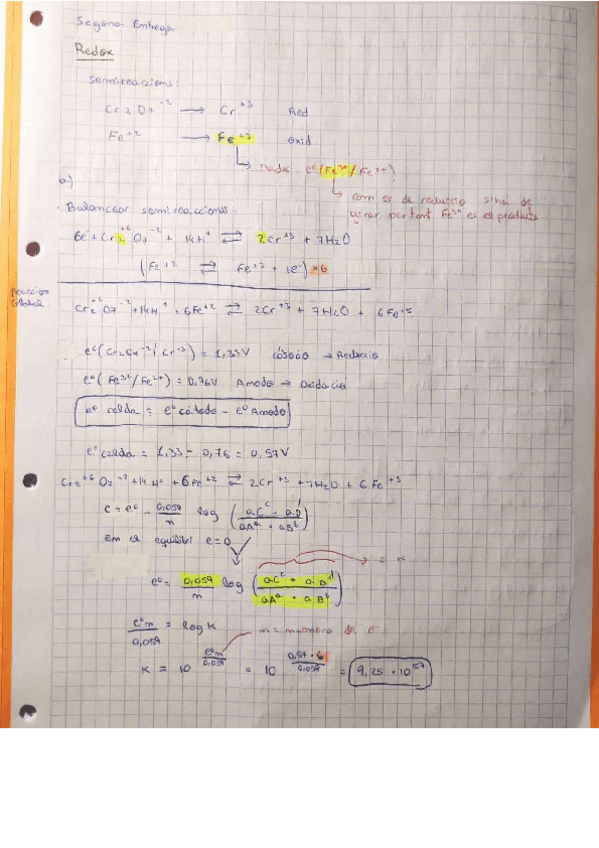 Segona Entrega
Redox
semireaccions:
Cr2O7⁻² → Cr⁺³ Red
Fe⁺² → Fe⁺³ Oxid
e°(Fe³⁺/Fe²⁺)
com es de reducció s'ha de
girar, per tant Fe³⁺ es el producte
b)
· Balancear semireaccions:
6e⁻ + Cr₂⁺⁶O7⁻² + 14H⁺ ⇄ 2Cr⁺³ + 7H2O
(Fe⁺² ⇄ Fe⁺³ + 1e⁻) ×6
Reaccion
Global
Cr₂⁺⁶O7⁻² + 14H⁺ + 6Fe⁺² ⇄ 2Cr⁺³ + 7H2O + 6Fe⁺³
= 1,33V → Reducció
e°(Fe³⁺/Fe²⁺) = 0,76V Anodo → Oxidació
e° celda = e° cátodo - e° Anodo
e° celda = 1,33 - 0,76 = 0,57V
Cr₂⁺⁶O7⁻² + 14H⁺ + 6Fe⁺² ⇄ 2Cr⁺³ + 7H2O + 6Fe⁺³
e = e° - 0,059/n log (aCᶜ · aDᵈ / aAᵃ · aBᵇ)
Em el equilibri e=0
= K
e° = 0,059/n log (aCᶜ · aBᵈ / aAᵃ · aBᵇ)
e°n/0,059 = log K n = número de e⁻
K = 10^(e°n/0,059) = 10^(0,57·6/0,059) = 9,25 · 10⁵⁷